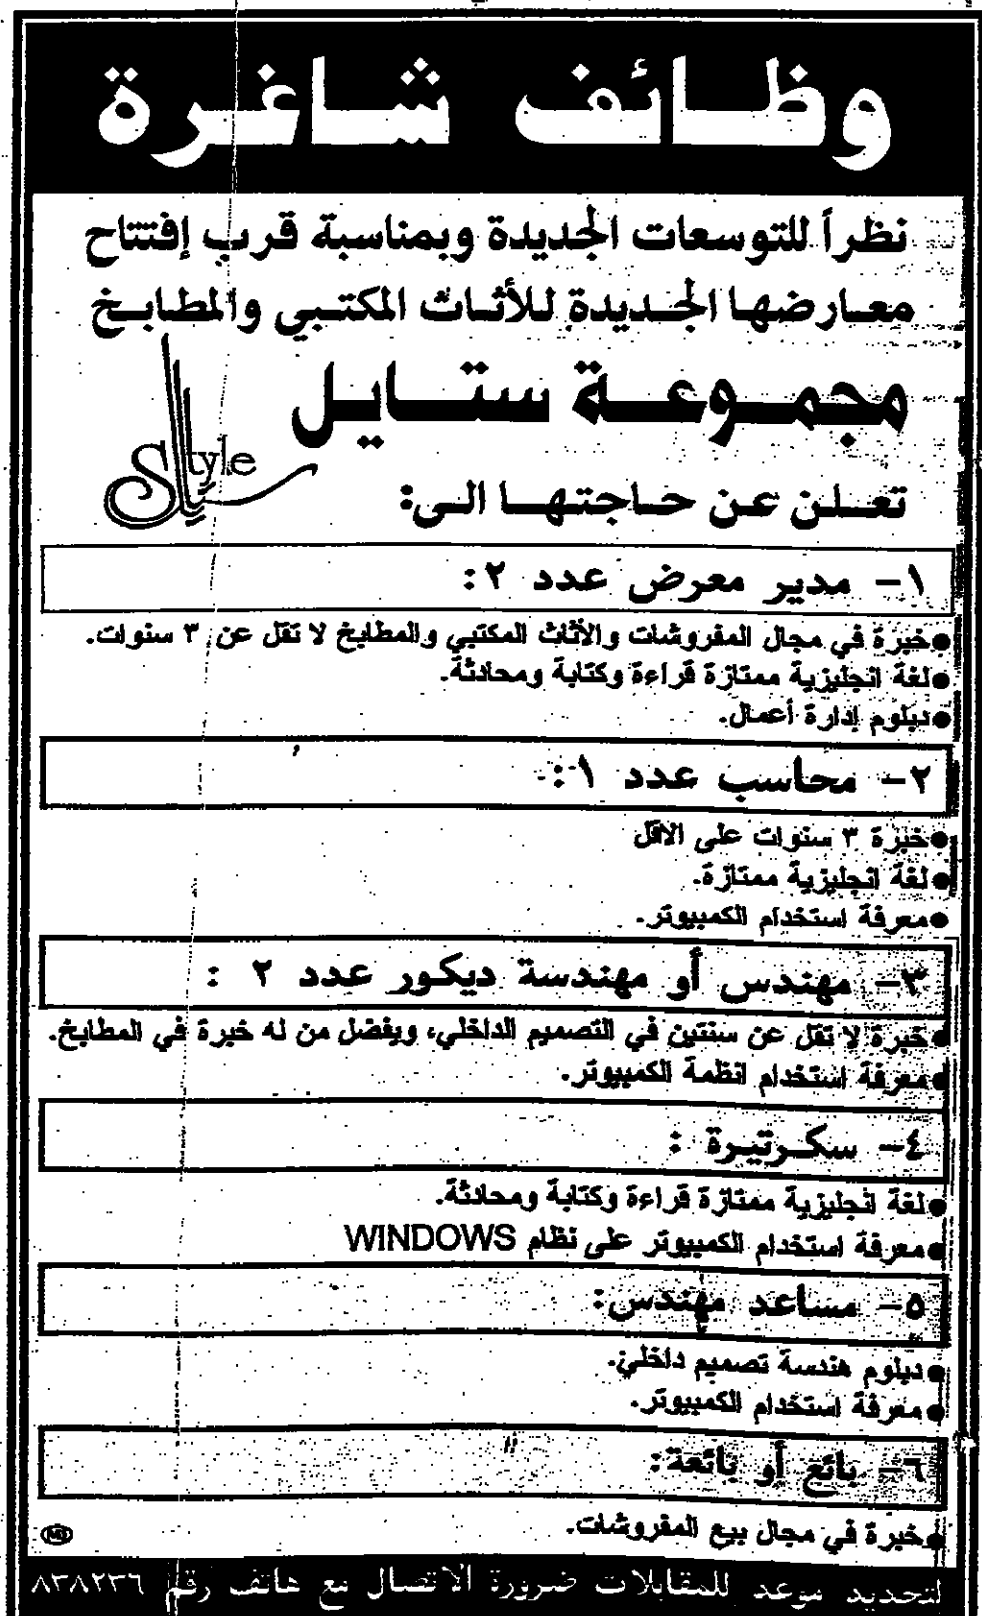 وظائف شاغرة
نظراً للتوسعات الجديدة وبمناسبة قرب إفتتاح
معارضها الجديدة للأثاث المكتبي والمطابخ
مجموعة ستايل
Style
تعلن عن حاجتها الى:
١- مدير معرض عدد ٢:
●خبرة في مجال المفروشات والأثاث المكتبي والمطابخ لا تقل عن ٣ سنوات.
●لغة انجليزية ممتازة قراءة وكتابة ومحادثة.
●دبلوم إدارة أعمال.
٢- محاسب عدد ١:
●خبرة ٣ سنوات على الاقل
●لغة انجليزية ممتازة.
●معرفة استخدام الكمبيوتر.
٣- مهندس أو مهندسة ديكور عدد ٢ :
●خبرة لا تقل عن سنتين في التصميم الداخلي، ويفضل من له خبرة في المطابخ.
●معرفة استخدام انظمة الكمبيوتر.
٤- سكرتيرة :
●لغة انجليزية ممتازة قراءة وكتابة ومحادثة.
●معرفة استخدام الكمبيوتر على نظام WINDOWS
٥- مساعد مهندس:
●دبلوم هندسة تصميم داخلي.
●معرفة استخدام الكمبيوتر.
٦- بائع أو بائعة:
●خبرة في مجال بيع المفروشات.
لتحديد موعد للمقابلات ضرورة الاتصال مع هاتف رقم ٨٣٨٢٣٦